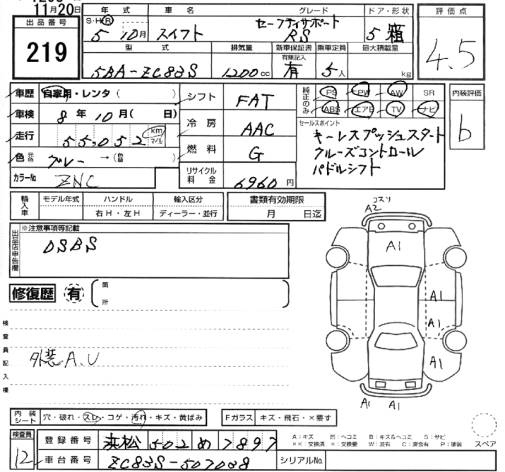 11月20日
出品番号
219
年式 車名 グレード ドア・形状
S・H・R 5 10月 スイフト セーフティサポート RS 5 箱
型式 排気量 新車保証書 乗車定員 最大積載量
有無記入
5BA-ZC83S 1200cc 有 5人 kg
評価点
4.5
車歴 自家用・レンタ( )
車検 8年10月( 日)
走行 55,052 km マイル
色 グレー→(色替)
カラーNo ZNC
シフト FAT
冷房 AAC
燃料 G
リサイクル料金 6960円
純正のみ
PS PW AW SR
ABS エアB TV ナビ
セールスポイント
キーレスプッシュスタート
クルーズコントロール
パドルシフト
内装評価
b
輸入車 モデル年式 ハンドル 輸入区分
右H・左H ディーラー・並行
書類有効期限
月 日迄
出品店申告欄
※注意事項等記載
DSBS
修復歴 有 箇所
検査員記入欄
外装A.U
コスリ
A2
A1
A1
A1
A1
A1
A1
内装シート 穴・破れ・スレ・コゲ・汚れ・キズ・黄ばみ
Fガラス キズ・飛石・×要す
A:キズ B:ヘコミ B:キズ&ヘコミ S:サビ
××:交換済 ×:交換要 W:波有 C:腐食有 P:塗装
スペア
検査員 12
登録番号 浜松502め7897
車台番号 ZC83S-507038
シリアルNo.